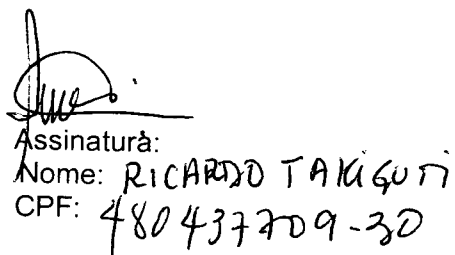 Assinatura:
Nome: RICARDO TAKIGUTI
CPF: 480437709-30